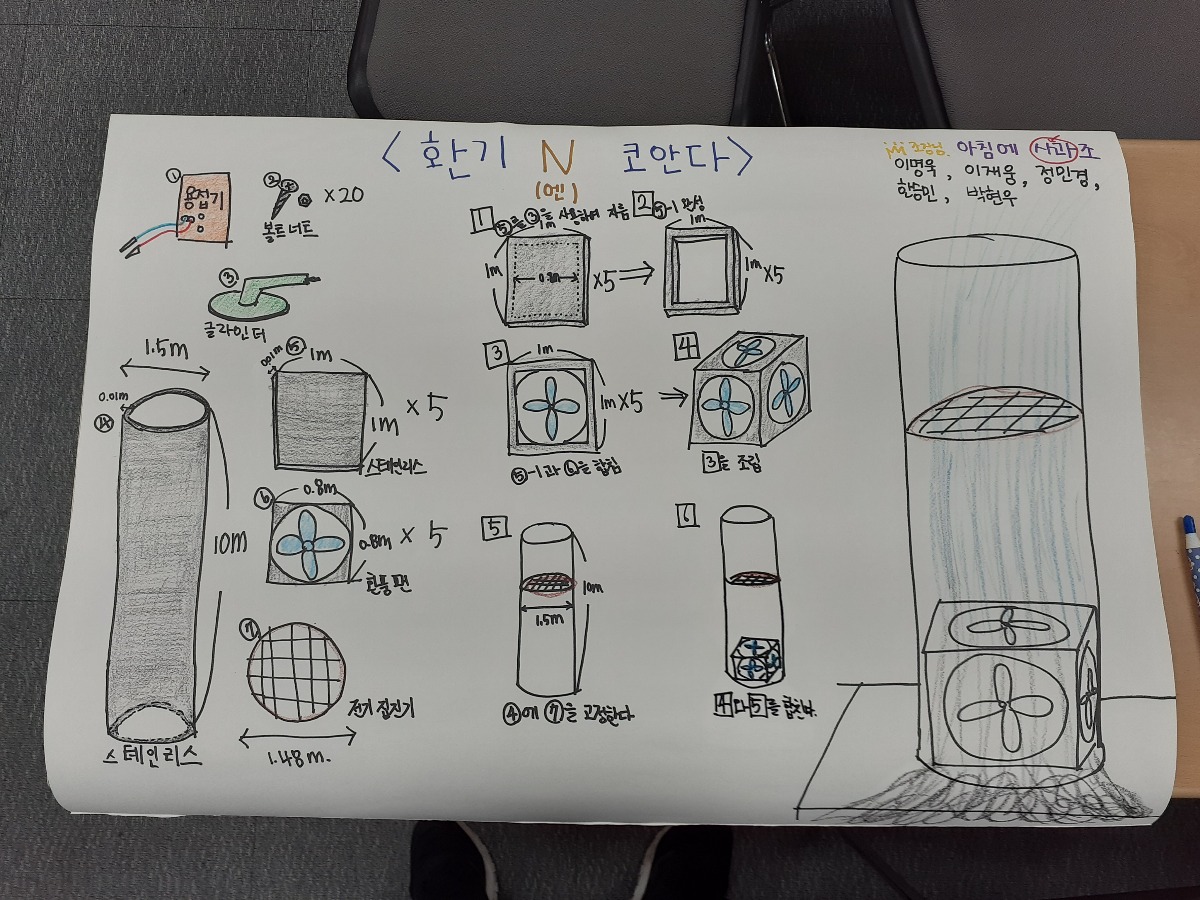 <환기 N 코안다>
(엔)
조장님. 아침에 사과조
이명욱, 이재웅, 정민경,
한승민, 박현우
① 용접기
② 볼트너트 ×20
③ 글라인더
1.5m
0.01m
④
10m
스테인리스
0.01m ⑤ 1m
1m × 5
스테인리스
⑥ 0.8m
0.8m × 5
환풍팬
⑦
전기 집진기
1.48m.
1 ⑤를 ③을 사용하여 자름
1m
1m 0.8m ×5
2 ⑤-1 완성
1m
1m ×5
3 1m
1m ×5
⑤-1과 ⑥을 합침
4
3을 조립
5
10m
1.5m
④에 ⑦을 고정한다
6
4다5를 합친다.